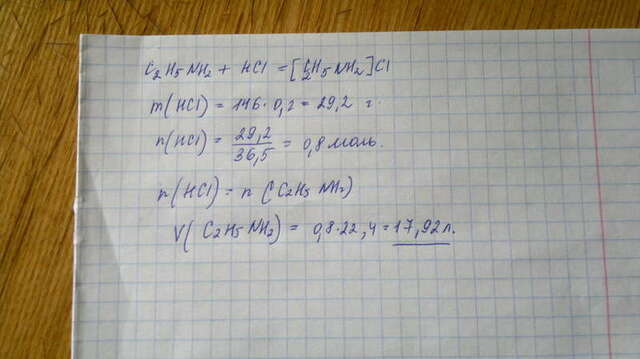 C₂H₅NH₂ + HCl = [C₂H₅NH₂]Cl
m(HCl) = 146 · 0,2 = 29,2 г.
n(HCl) = 29,2/36,5 = 0,8 моль.
n(HCl) = n (C₂H₅NH₂)
V( C₂H₅NH₂) = 0,8·22,4 = 17,92 л.